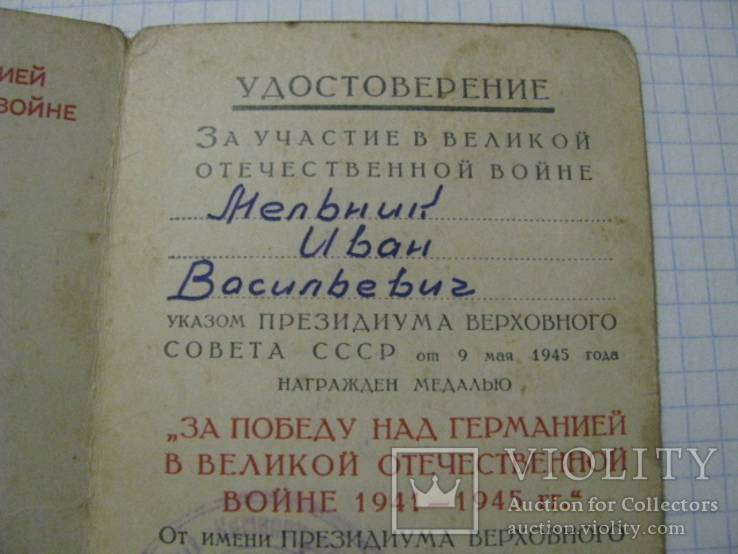 ИЕЙ
ВОЙНЕ
УДОСТОВЕРЕНИЕ
ЗА УЧАСТИЕ В ВЕЛИКОЙ
ОТЕЧЕСТВЕННОЙ ВОЙНЕ
Мельник
Иван
Васильевич
УКАЗОМ ПРЕЗИДИУМА ВЕРХОВНОГО
СОВЕТА СССР от 9 мая 1945 года
НАГРАЖДЕН МЕДАЛЬЮ
„ЗА ПОБЕДУ НАД ГЕРМАНИЕЙ
В ВЕЛИКОЙ ОТЕЧЕСТВЕННОЙ
ВОЙНЕ 1941—1945 гг.“
ОТ ИМЕНИ ПРЕЗИДИУМА ВЕРХОВНОГО
VIOLITY
Auction for Collectors
auction.violity.com